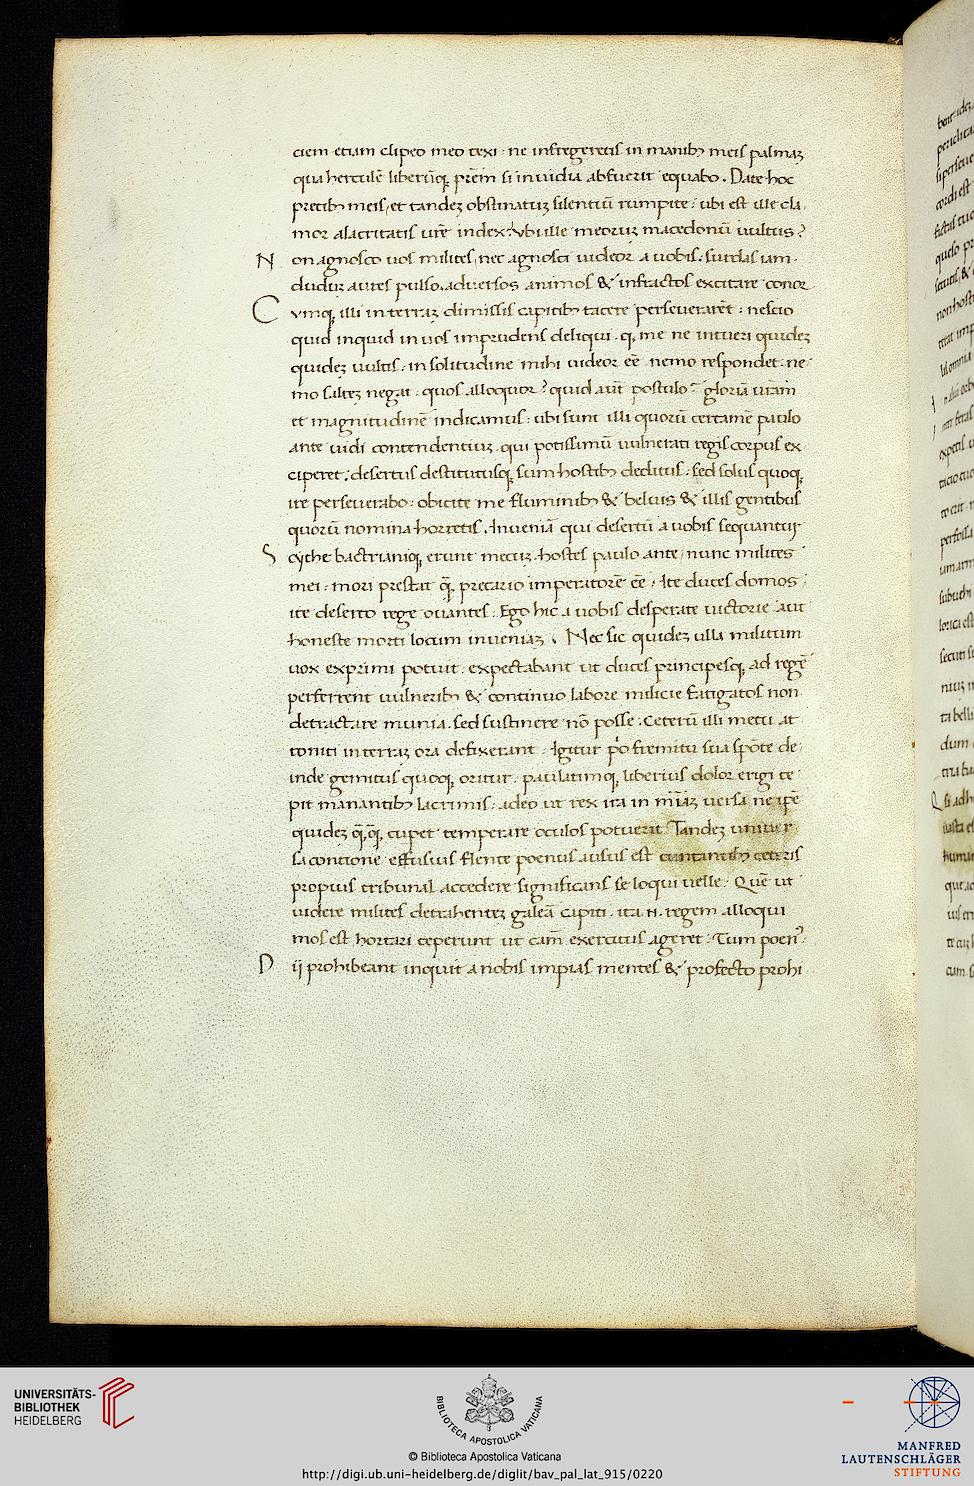 ciem etiam clipeo meo texi · ne infregeretis in manib; meis palmaʒ
qua herculē liberūq; prēm si inuidia abfuerit equabo . Date hoc
precib; meis / et tandeʒ obstinatuʒ silentiū rumpite : ubi est ille cla
mor alacritatis urē index ? Vbi ille meoruʒ macedonū uultus ?
N on agnosco uos milites / nec agnosci uideor a uobis . surdas iam
duduʒ aures pulso . aduersos animos & infractos excitare conor
C vmq; illi in terraʒ dimissis capitib; tacere perseuerarēt : nescio
quid inquid in uos imprudens deliqui · q; me ne intueri quideʒ
quideʒ uultis : in solitudine mihi uideor eē · nemo respondet · ne
mo salteʒ negat : quos alloquor ? quid aūt postulo ? gloriā urām
et magnitudinē indicamus : ubi sunt illi quorū certamē paulo
ante uidi contendentiuʒ . qui potissimū uulnerati regis corpus ex
ciperet . desertus destitutusq; sum hostib; deditus · sed solus quoq;
ire perseuerabo : obicite me fluminib; & beluis & illis gentibus
quorū nomina horretis . Inueniā qui desertū a uobis sequantur
S cythe bactrianiq; erunt mecuʒ · hostes paulo ante / nunc milites
mei : mori prestat q̄ precario imperatorē eē : ite duces domos
ite deserto rege ouantes . Ego hic a uobis desperate uictorie aut
honeste morti locum inueniaʒ . Nec sic quideʒ ulla militum
uox exprimi potuit . expectabant ut duces principesq; ad regē
perferrent uulnerib; & continuo labore milicie fatigatos non
detractare munia . sed sustinere nō posse . Ceterū illi metu at
toniti in terraʒ ora defixerant . Igitur p̊o fremitu sua spōte de
inde gemitus quoq; oritur . paulatimq; liberius dolor erigi ce
pit manantib; lacrimis : adeo ut rex ira in mīāʒ uersa ne ipē
quideʒ q̄q; cuper temperare oculos potuerit Tandeʒ uniuer
sa contione effusius flente poenus ausus est cuntantib; ceteris
propius tribunal accedere significans se loqui uelle . Quē ut
uidere milites detrahenteʒ galeā capiti . ita .n. regem alloqui
mos est hortari ceperunt ut cām exercitus ageret . Tum poen9 .
D ij prohibeant inquit a nobis impias mentes & profecto prohi
UNIVERSITÄTS-
BIBLIOTHEK
HEIDELBERG
BIBLIOTECA APOSTOLICA VATICANA
© Biblioteca Apostolica Vaticana
http://digi.ub.uni-heidelberg.de/diglit/bav_pal_lat_915/0220
MANFRED
LAUTENSCHLÄGER
STIFTUNG